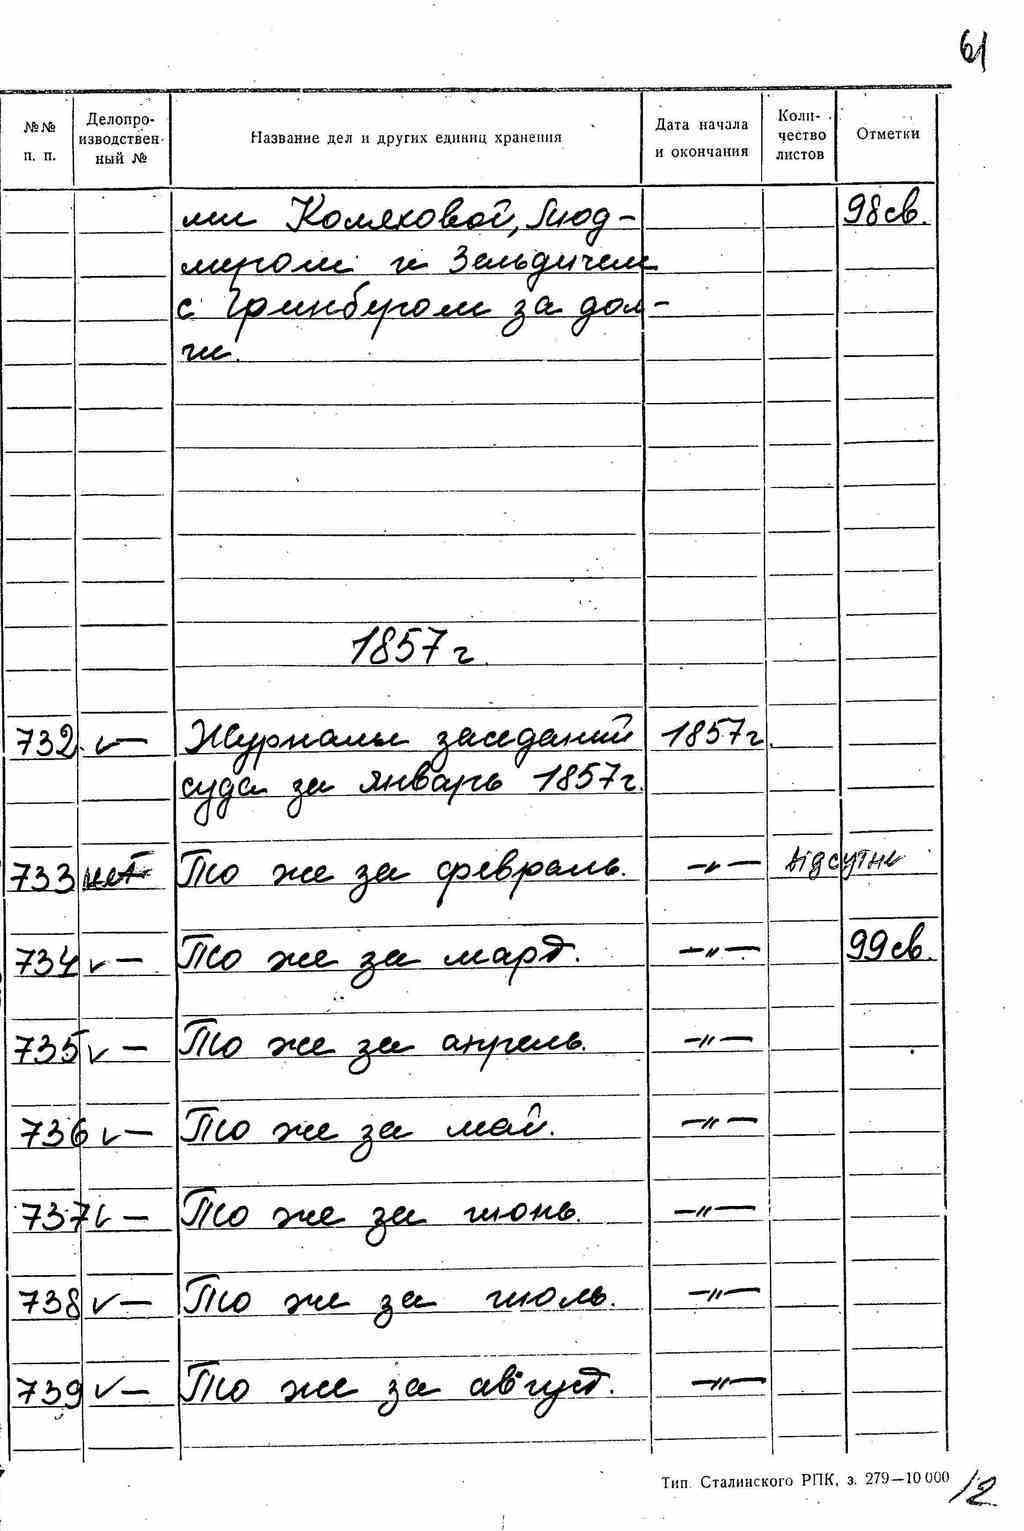 61
№№ п. п.
Делопро-
изводствен-
ный №
Название дел и других единиц хранения
Дата начала
и окончания
Коли-
чество
листов
Отметки
ми Коляковой, Люд- 98 св.
миром и Зельдичем
с Гринбергом за дол-
ги.
1857 г.
732. ✓— Журналы заседаний 1857 г.
суда за январь 1857 г.
733 нет То же за февраль. —„— відсутнє
734 ✓— То же за март. —„— 99 св.
735 ✓— То же за апрель. —„—
736 ✓— То же за май. —„—
737 ✓— То же за июнь. —„—
738 ✓— То же за июль. —„—
739 ✓— То же за август. —„—
Тип. Сталинского РПК, з. 279—10 000
12